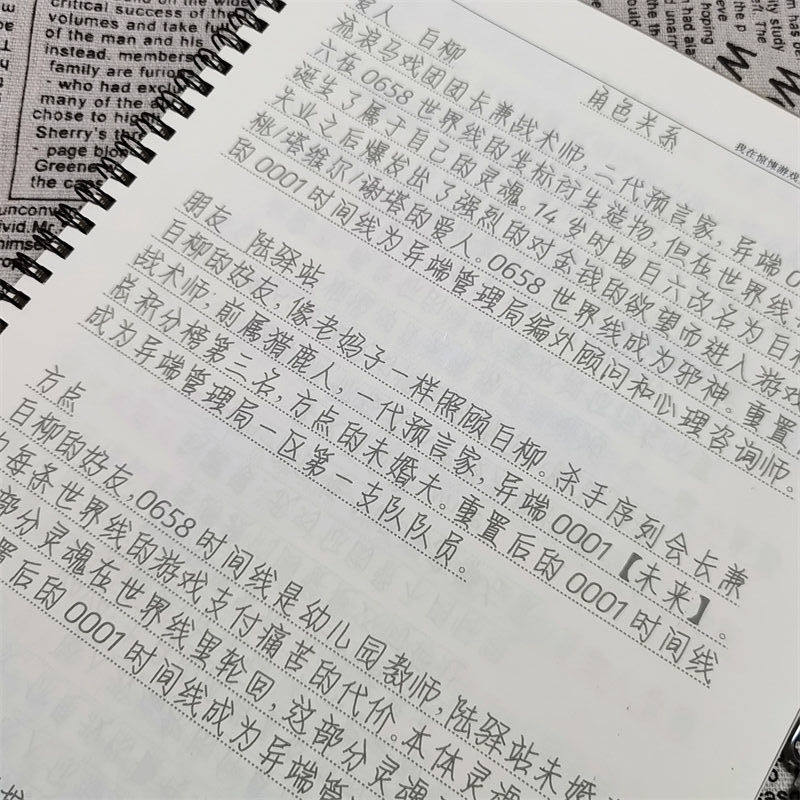 critical success of the
volumes and take fu
of the man and his
instead. members
family are furiou
- who had exclu
many of the a
chose to high
Sherry's
- page blow
Greene
the ca
unconv
vid.Mr.
himse
我在惊悚游戏
角色关系
爱人 白柳
流浪马戏团团长兼战术师，二代预言家，异端0
六在0658世界线的坐标衍生造物，但在世界线
诞生了属于自己的灵魂。14岁时由白六改名为白柳
失业之后爆发出了强烈的对金钱的欲望而进入游戏
桃/塔维尔/谢塔的爱人。0658世界线成为邪神。重置
的0001时间线为异端管理局编外顾问和心理咨询师。
朋友 陆驿站
白柳的好友，像老妈子一样照顾白柳。杀手序列会长兼
战术师，前属猎鹿人，一代预言家，异端0001【未来】。
总积分榜第三名，方点的未婚夫。重置后的0001时间线
成为异端管理局一区第一支队队员。
方点
白柳的好友，0658时间线是幼儿园教师，陆驿站未婚
为每条世界线的游戏支付痛苦的代价。本体灵魂
部分灵魂在世界线里轮回，这部分灵魂
置后的0001时间线成为异端管